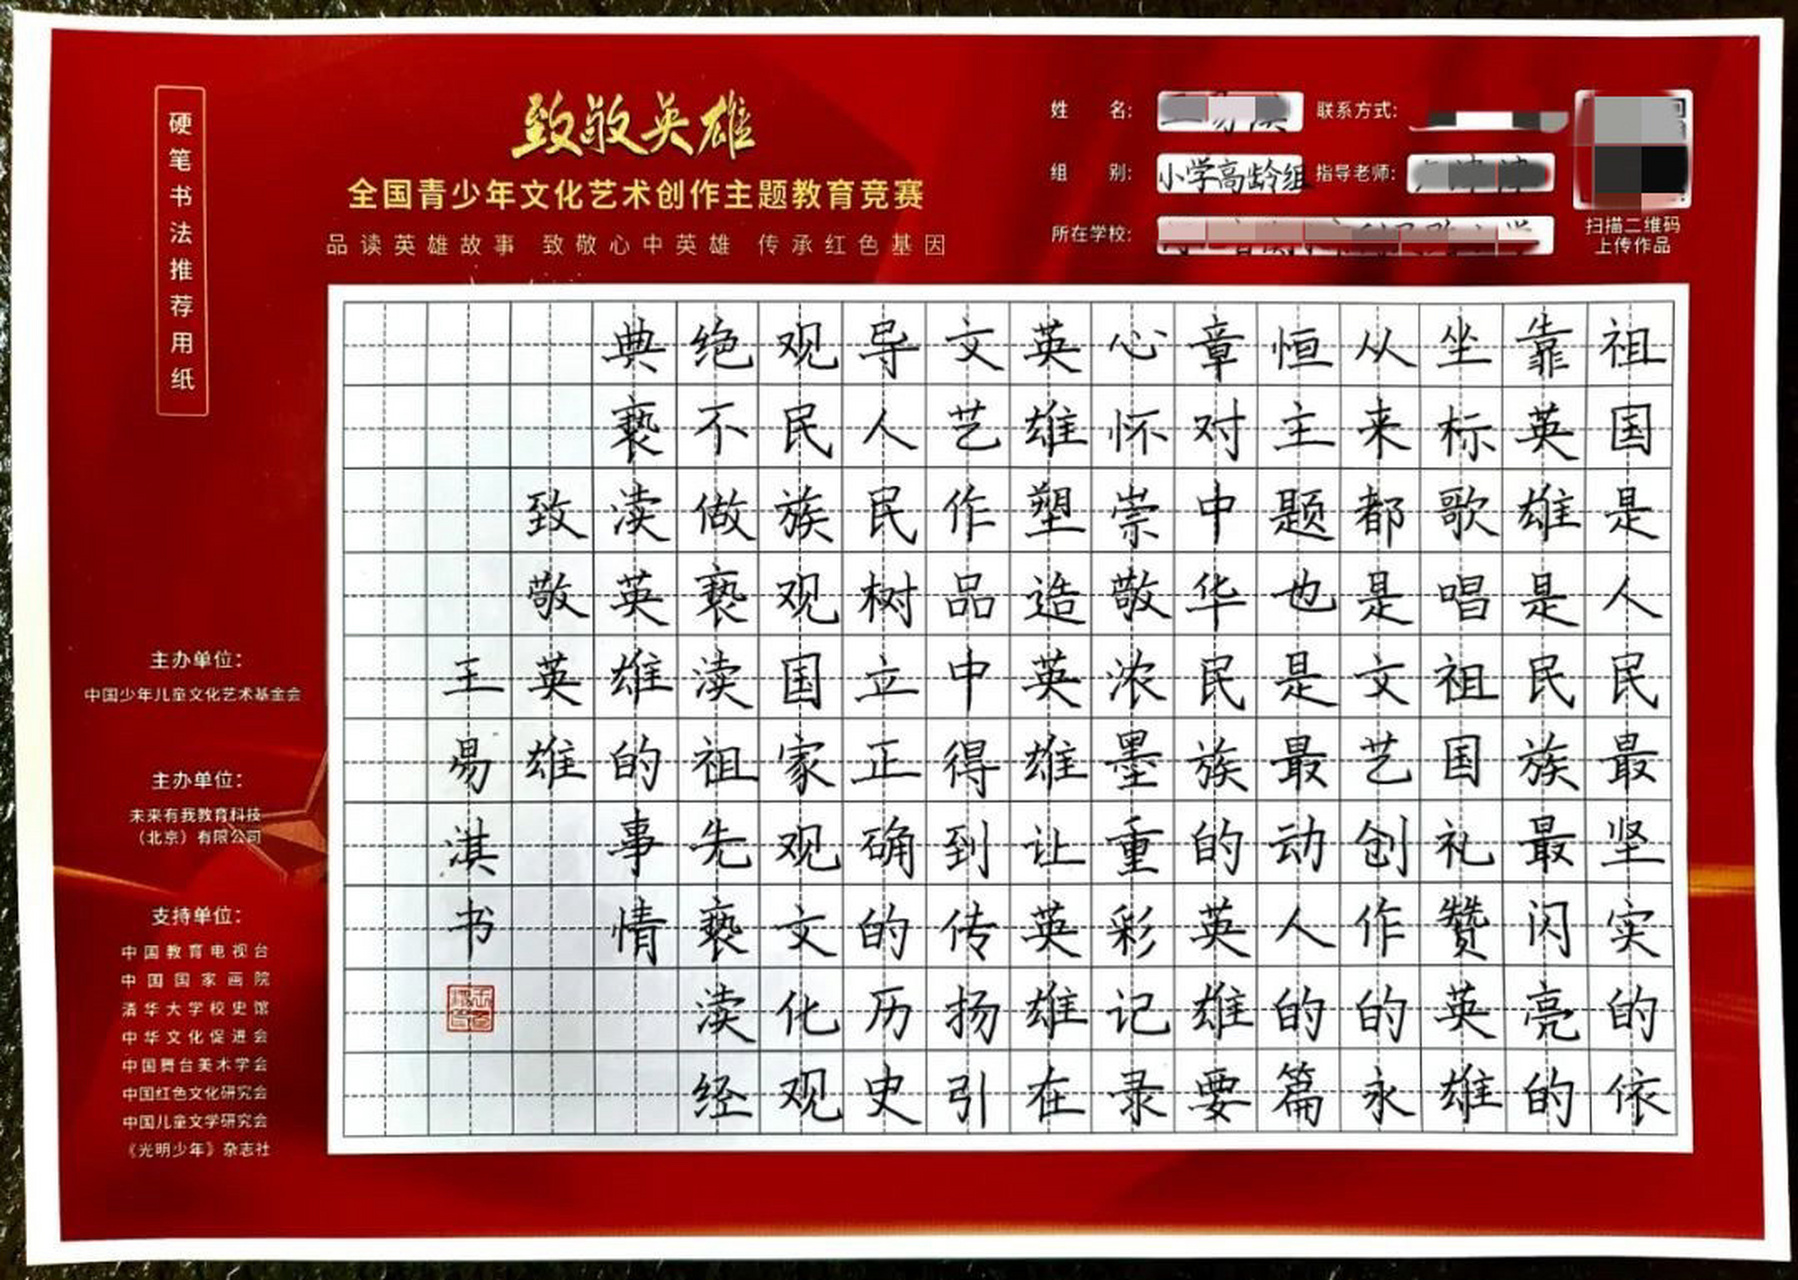 硬笔书法推荐用纸
致敬英雄
全国青少年文化艺术创作主题教育竞赛
品读英雄故事 致敬心中英雄 传承红色基因
姓 名:
联系方式:
组 别: 小学高龄组
指导老师:
所在学校:
扫描二维码
上传作品
祖国是人民最坚实的依
靠英雄是民族最闪亮的
坐标歌唱祖国礼赞英雄
从来都是文艺创作的永
恒主题也是最动人的篇
章对中华民族的英雄要
心怀崇敬浓墨重彩记录
英雄塑造英雄让英雄在
文艺作品中得到传扬引
导人民树立正确的历史
观民族观国家观文化观
绝不做亵渎祖先亵渎经
典亵渎英雄的事情
致敬英雄
王易淇书
主办单位:
中国少年儿童文化艺术基金会
主办单位:
未来有我教育科技
（北京）有限公司
支持单位:
中国教育电视台
中国国家画院
清华大学校史馆
中华文化促进会
中国舞台美术学会
中国红色文化研究会
中国儿童文学研究会
《光明少年》杂志社